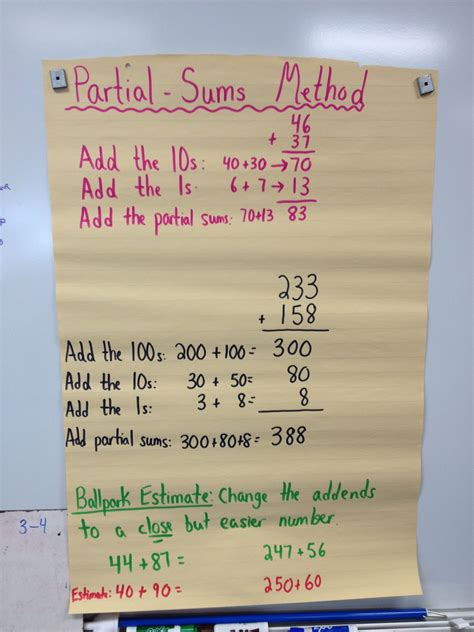 Partial - Sums Method
46
+ 37
Add the 10s: 40+30 → 70
Add the 1s: 6 + 7 → 13
Add the partial sums: 70+13 83
233
+ 158
Add the 100s: 200 + 100 = 300
Add the 10s: 30 + 50 = 80
Add the 1s: 3 + 8 = 8
Add partial sums: 300+80+8 = 388
Ballpark Estimate: Change the addends
to a close but easier number.
3-4
44 + 87 = 247 + 56
Estimate: 40 + 90 = 250 + 60
EXPO